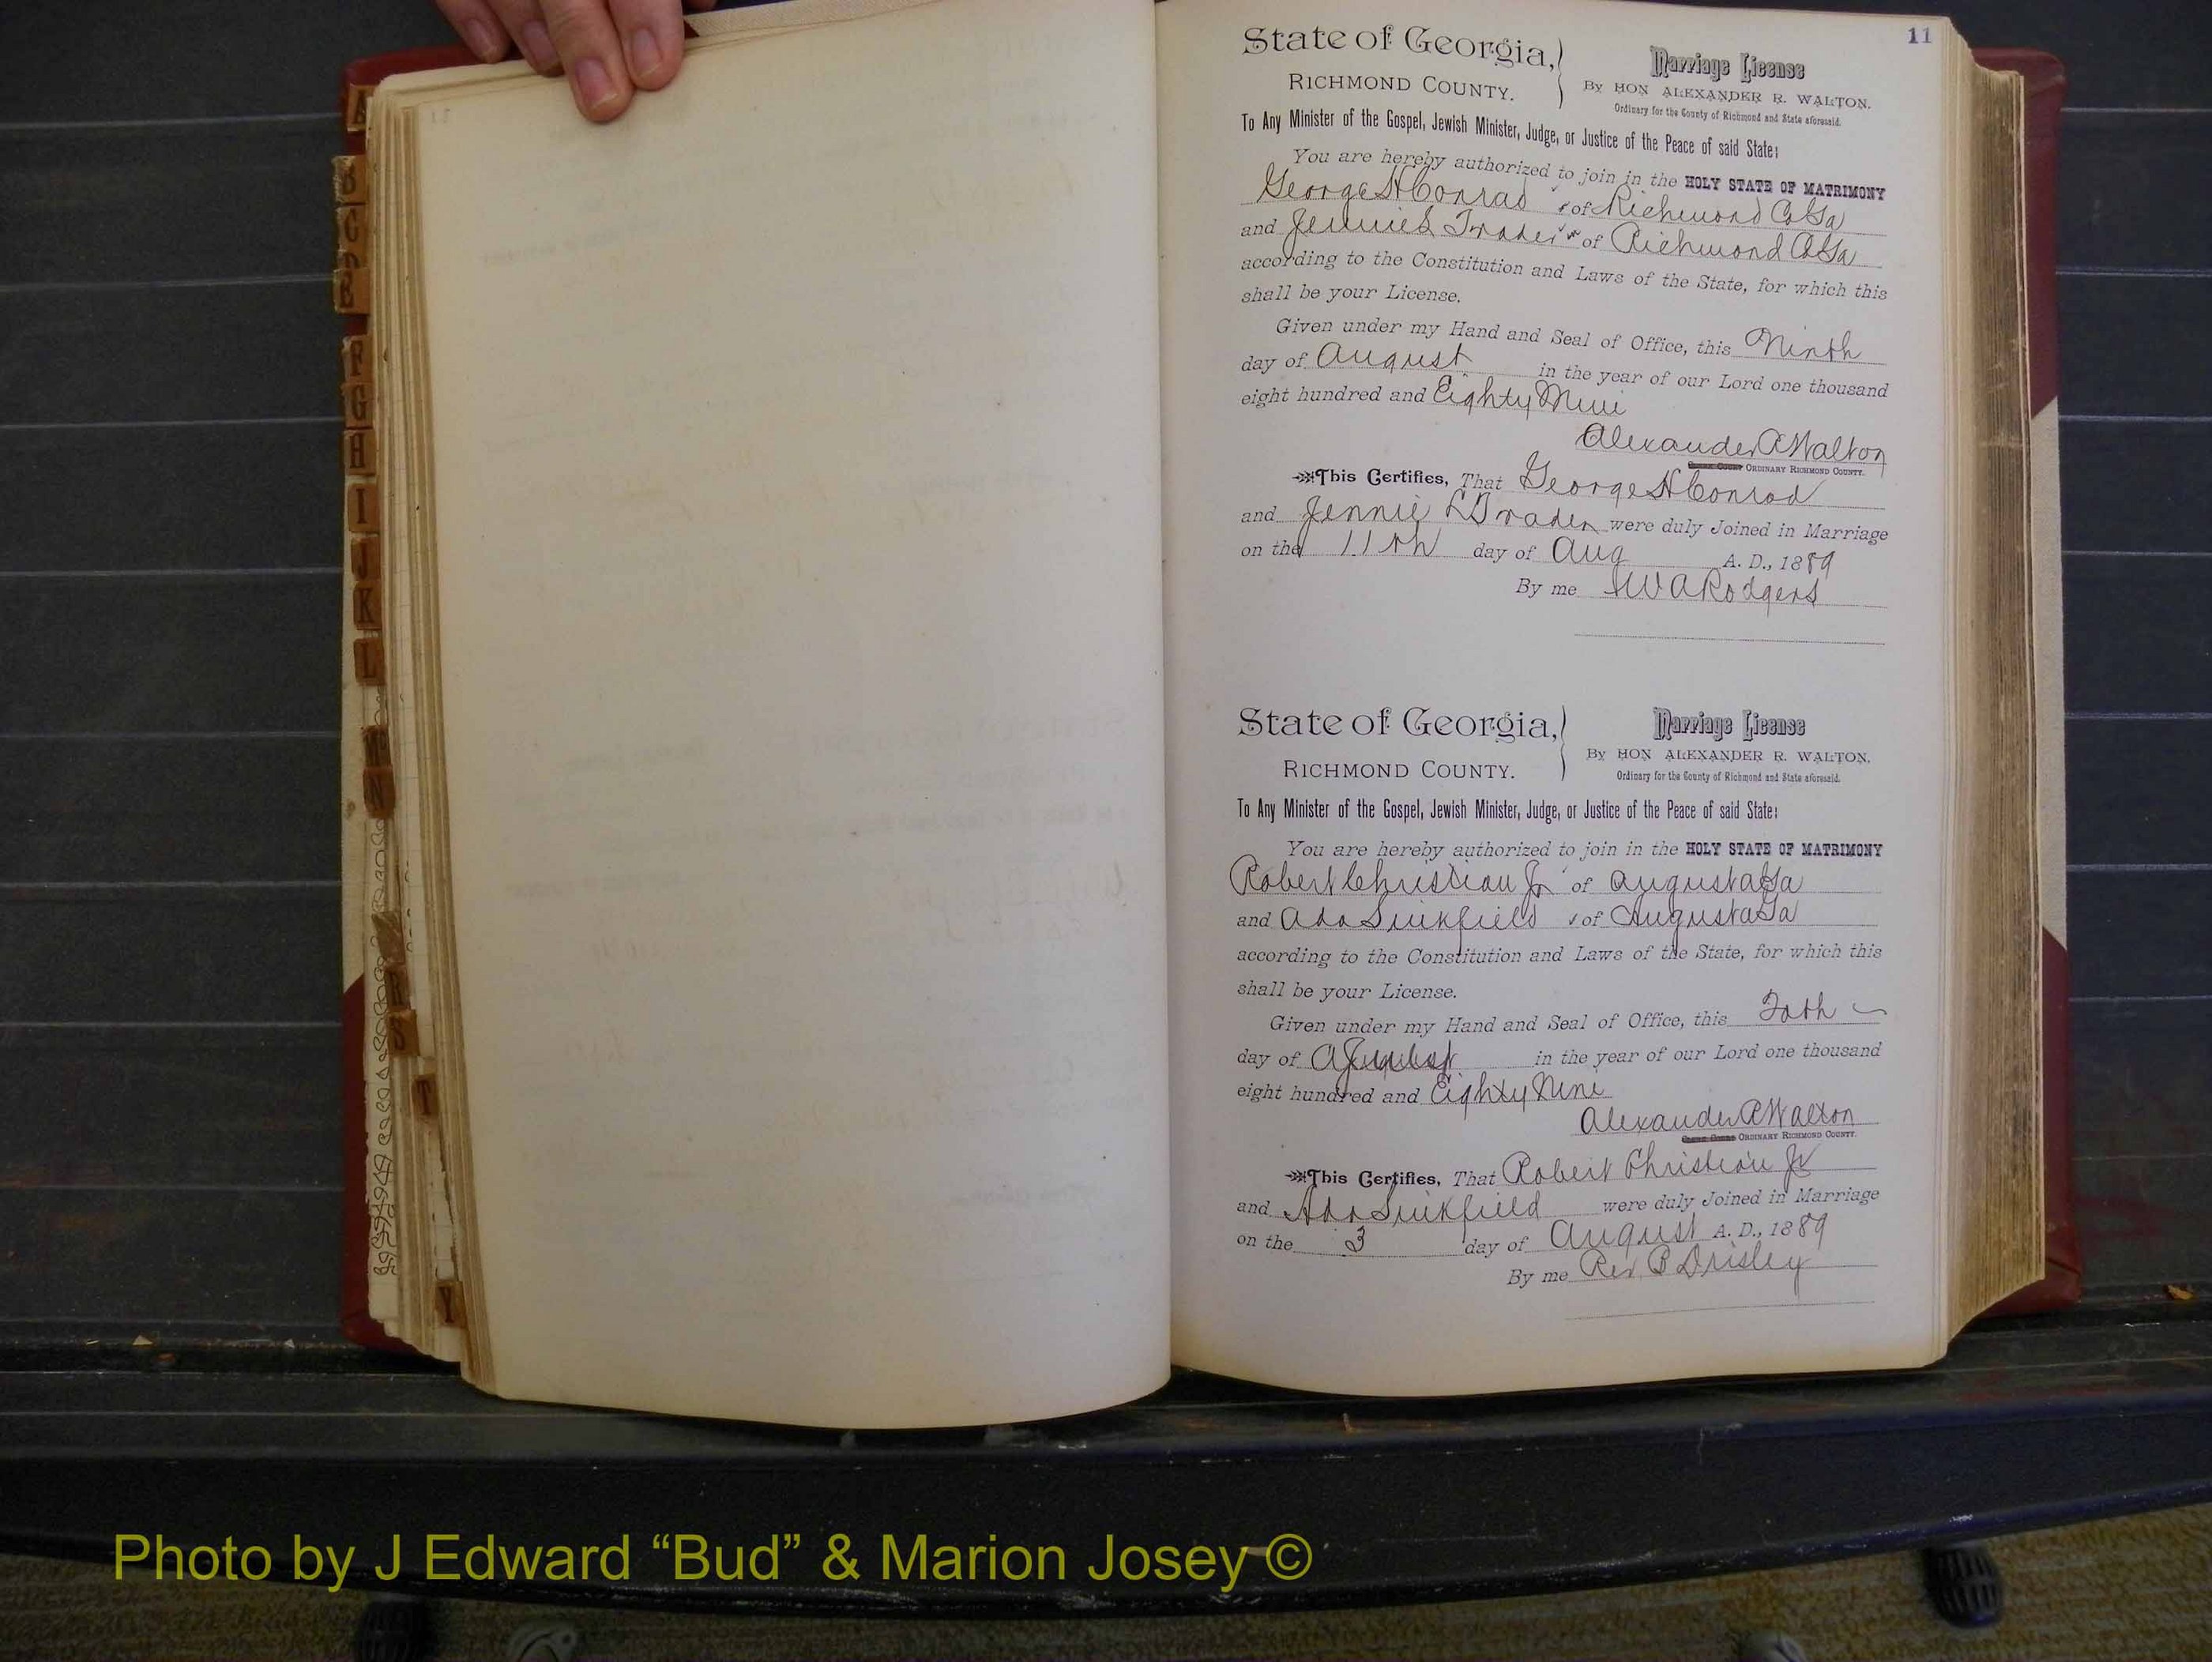 11
State of Georgia,
RICHMOND COUNTY.
Marriage License
By HON ALEXANDER R. WALTON.
Ordinary for the County of Richmond and State aforesaid.
To Any Minister of the Gospel, Jewish Minister, Judge, or Justice of the Peace of said State:
You are hereby authorized to join in the HOLY STATE OF MATRIMONY
George H Conrad of Richmond Co Ga
and Jennie L of Richmond Co Ga
according to the Constitution and Laws of the State, for which this
shall be your License.
Given under my Hand and Seal of Office, this Ninth
day of August in the year of our Lord one thousand
eight hundred and Eighty Nine
Alexander R Walton
ORDINARY RICHMOND COUNTY.
This Certifies, That George H Conrad
and Jennie L were duly Joined in Marriage
on the 11th day of Aug A. D., 1889
By me W A Rodgers
State of Georgia,
RICHMOND COUNTY.
Marriage License
By HON ALEXANDER R. WALTON.
Ordinary for the County of Richmond and State aforesaid.
To Any Minister of the Gospel, Jewish Minister, Judge, or Justice of the Peace of said State:
You are hereby authorized to join in the HOLY STATE OF MATRIMONY
Robert Christian Jr of Augusta Ga
and Ada Sinkfield of Augusta Ga
according to the Constitution and Laws of the State, for which this
shall be your License.
Given under my Hand and Seal of Office, this
day of in the year of our Lord one thousand
eight hundred and Eighty Nine
Alexander R Walton
ORDINARY RICHMOND COUNTY.
This Certifies, That Robert Christian Jr
and Ada Sinkfield were duly Joined in Marriage
on the 3 day of August A. D., 1889
By me Rev B Drisley
B
C
F
G
H
I
J
K
L
N
S
T
Y
Photo by J Edward “Bud” & Marion Josey ©